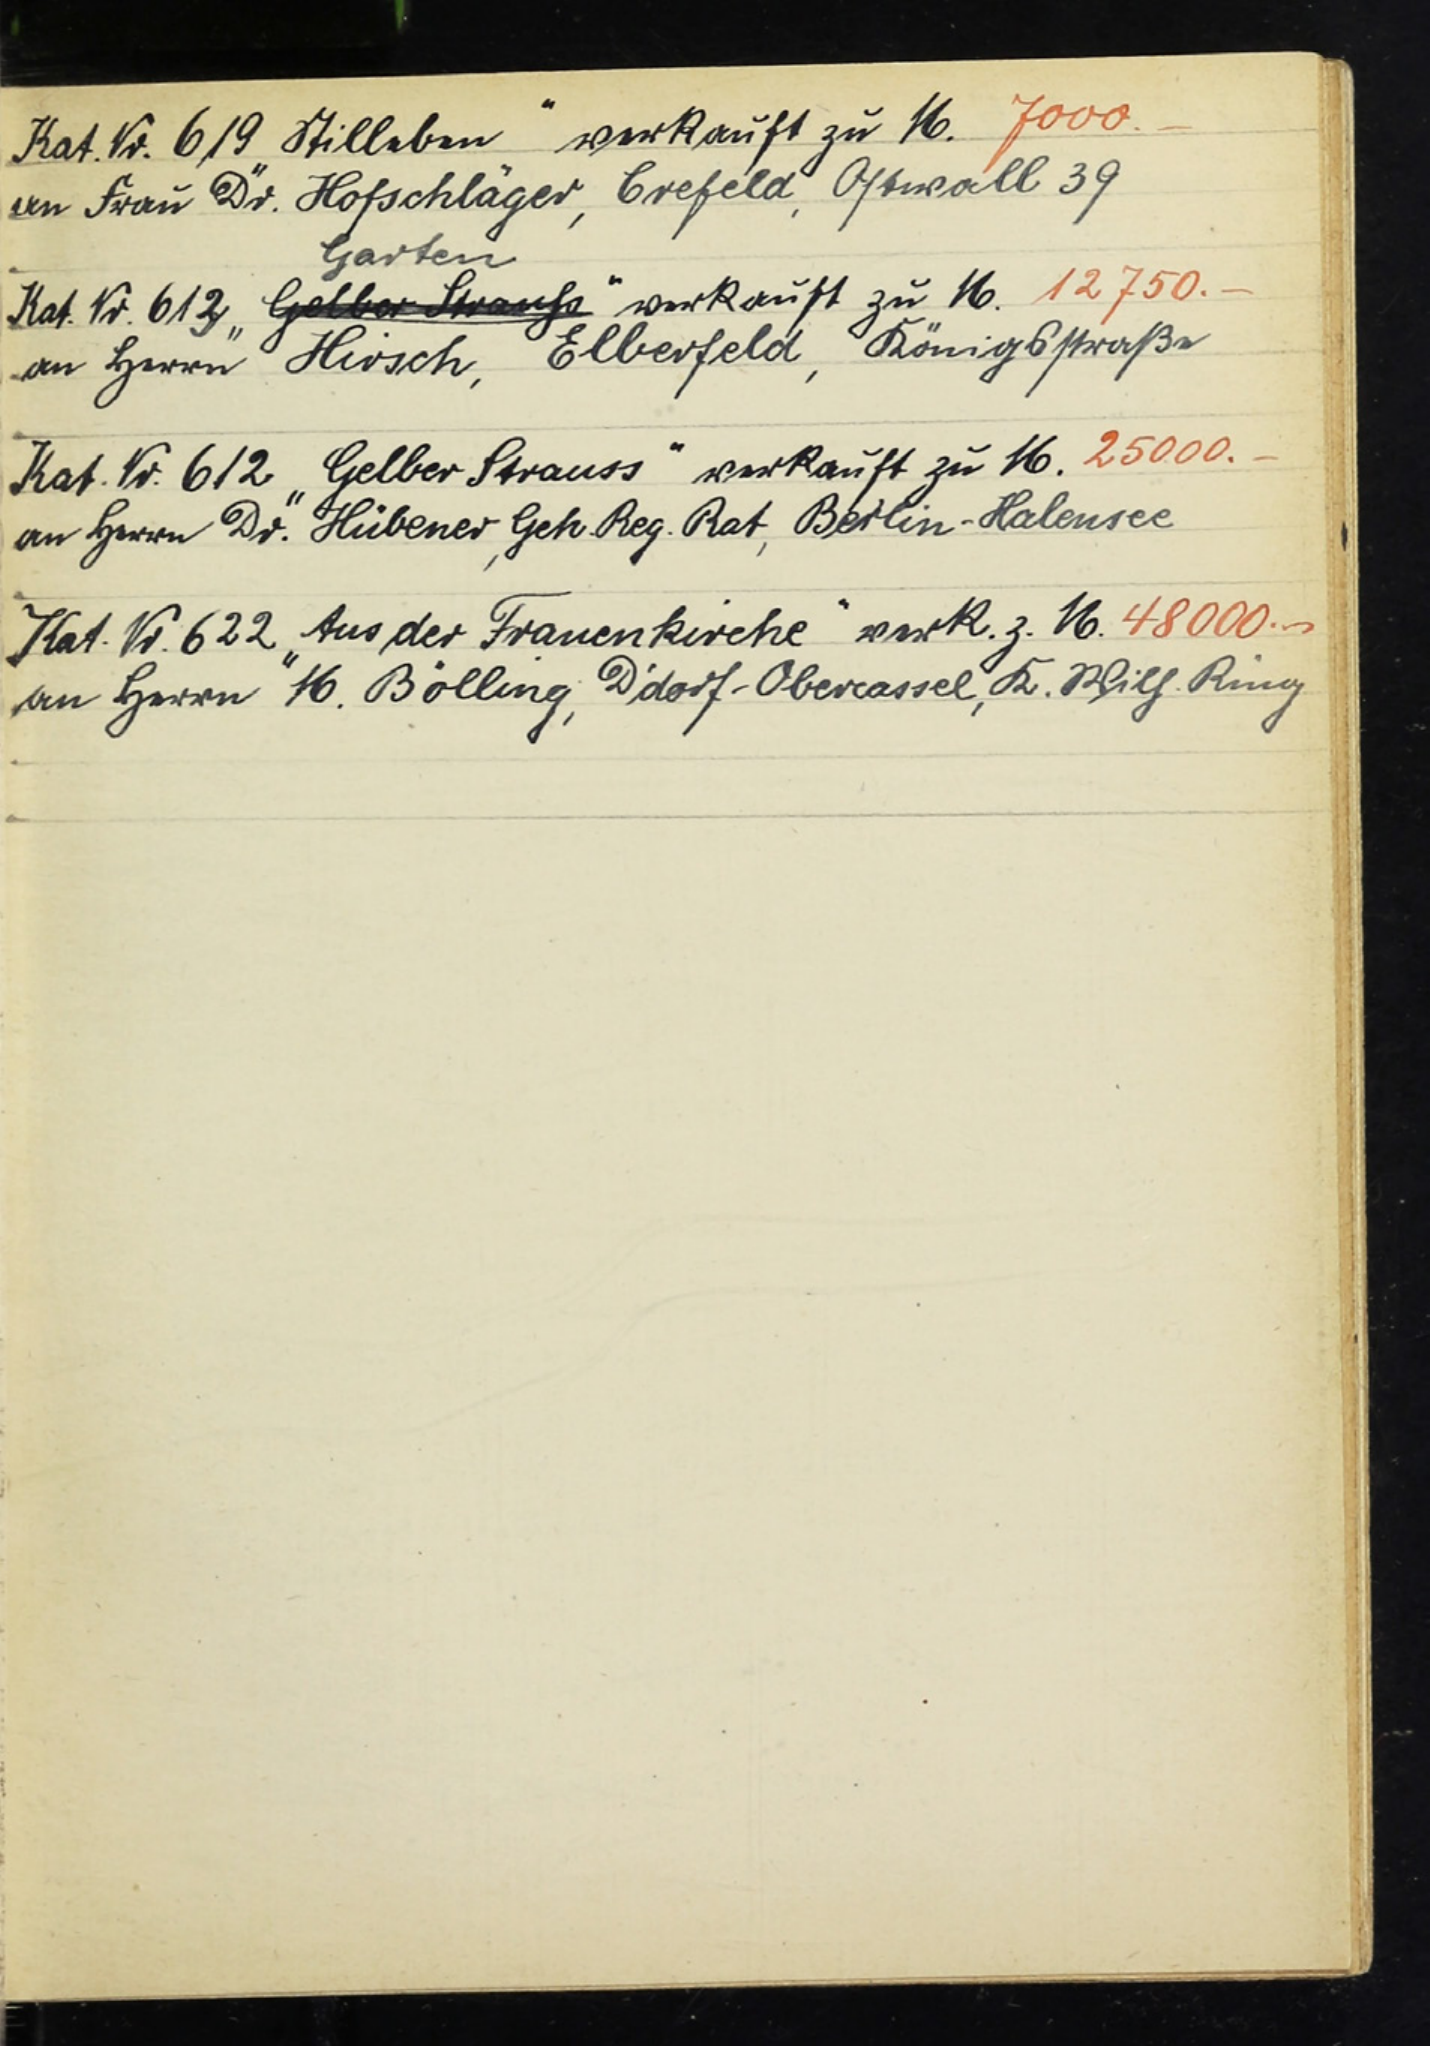 Kat. Nr. 619 „Stilleben“ verkauft zu M. 7000.–
an Frau Dr. Hofschläger, Crefeld, Ostwall 39
Garten
Kat. Nr. 613 „Gelber Strauss“ verkauft zu M. 12750.–
an Herrn Hirsch, Elberfeld, Königsstraße
Kat. Nr. 612 „Gelber Strauss“ verkauft zu M. 25000.–
an Herrn Dr. Hübener, Geh. Reg. Rat, Berlin-Halensee
Kat. Nr. 622 „Aus der Frauenkirche“ verk. z. M. 48000.–
an Herrn M. Bölling, D'dorf-Obercassel, K. Wilh. Ring